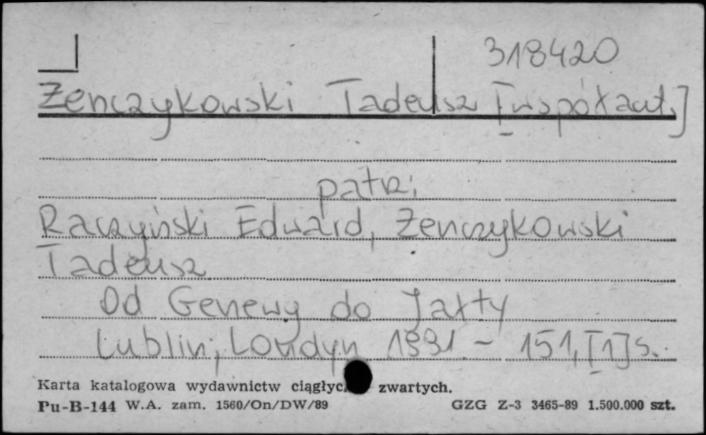 318420
Żenczykowski Tadeusz [współaut.]
patrz:
Raczyński Edward, Żenczykowski
Tadeusz
Od Genewy do Jałty
Lublin; Londyn 1991 - 151, [1] s.
Karta katalogowa wydawnictw zwartych.
Pu-B-144 W.A. zam. 1560/On/DW/89 GZG Z-3 3465-89 1.500.000 szt.